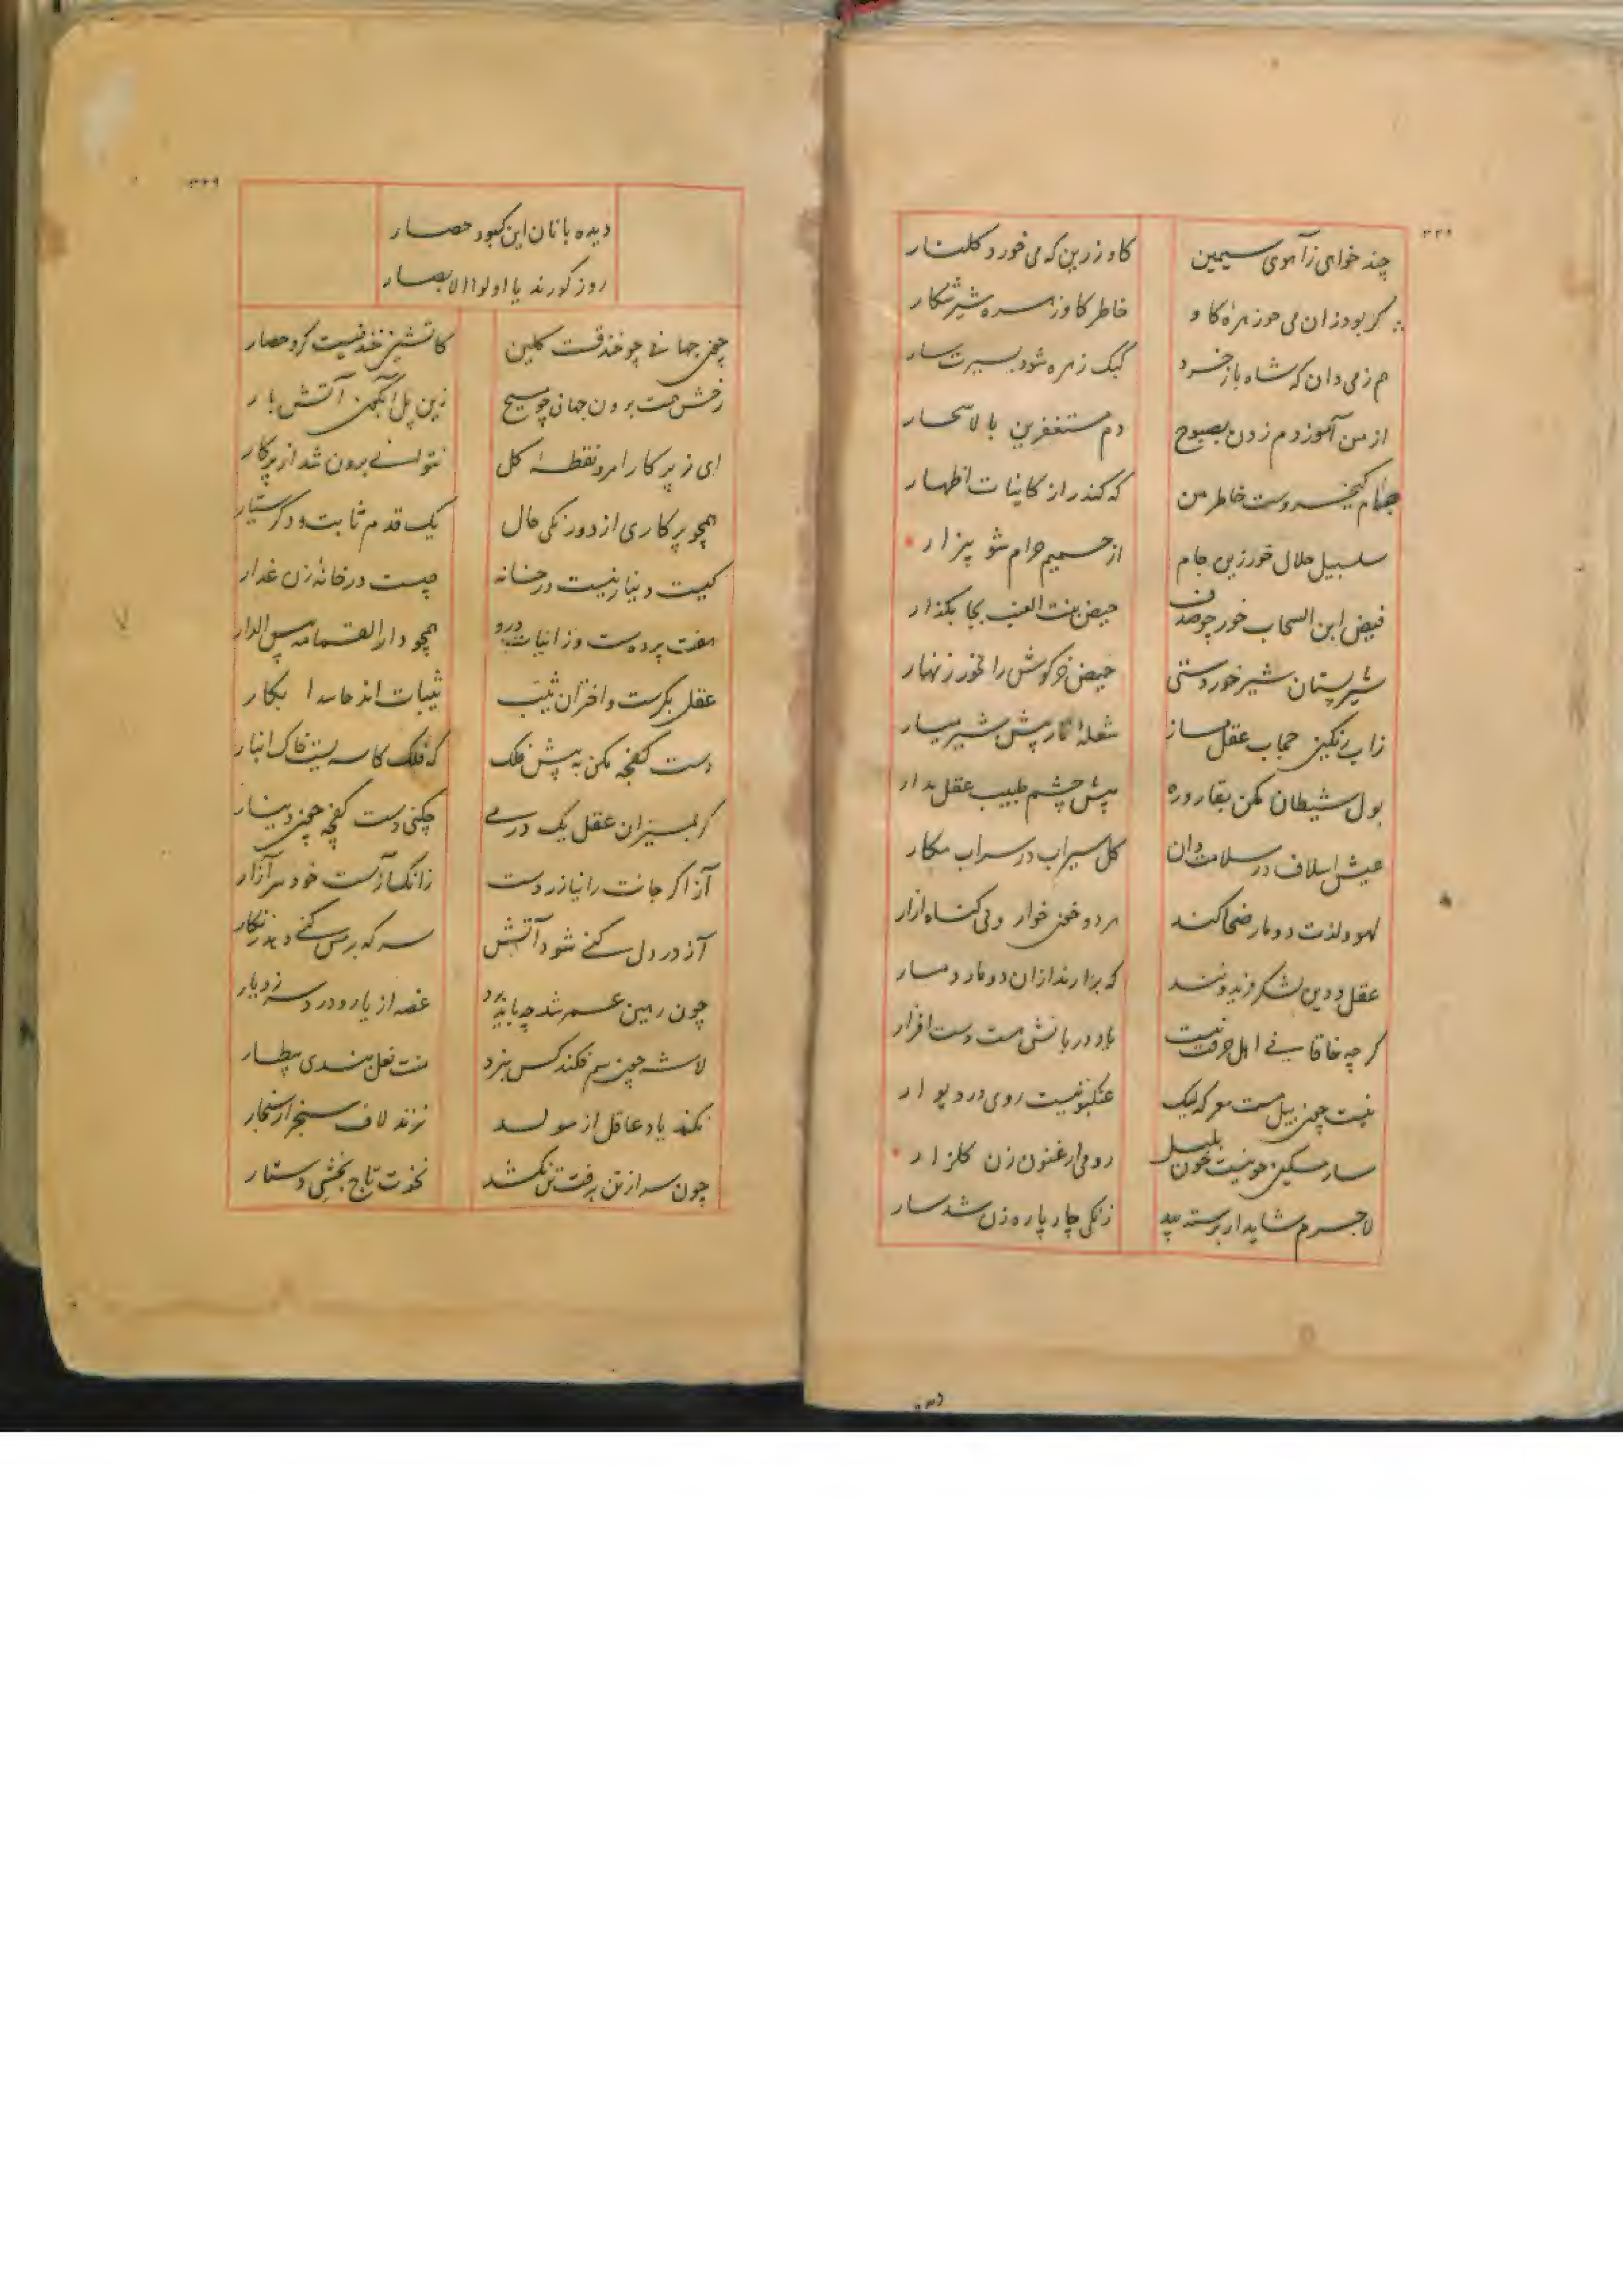 ۳۳۸
چند خواهی ز آهوی سیمین
گاو زرین که می خورد گلنار
گر بود زان می چو زهره گاو
خاطر گاو زهره شیر شکار
هم ز می دان که شاه باز خرد
کبک زهره شود به سیرت سار
از من آموز دم زدن به صبوح
دم مستغفرین بالاسحار
جام کیخسروست خاطر من
که کند راز کاینات اظهار
سلسبیل حلال خور زین جام
از حمیم حرام شو بیزار
فیض ابن السحاب خور چو صدف
حیض بنت العنب بجا بگذار
شیر پستان شیر خوردستی
حیض خرگوش را مخور زنهار
زاب رنگین حجاب عقل مساز
شعله نار پیش شیر میار
بول شیطان مکن بقاروره
پیش چشم طبیب عقل بدار
عیش اسلاف در سلامت دان
گل سیراب در سراب مکار
لهو و لذت دو مار ضحاکند
هر دو خون خوار و بی گناه آزار
عقل و دین لشکر فریدونند
که برآرند از آن دو مار دمار
گرچه خاقانی اهل حرفت نیست
یاد دربانش هست دست افزار
نیست چون پیل مست معرکه لیک
عنکبوتیست روی در دیوار
سار مسکین چو نیست چون بلبل
رومی ارغنون زن گلزار
لاجرم شاید ار برسته بید
زنگی چارپاره زن شد سار
۳۳۹
دیده بانان این کبود حصار
روز کورند یا اولوا الابصار
چون جهانی چو خندقست گلین
کاتشین خندقیست گرد حصار
رخش همت برون جهان چو مسیح
زین پل آبگون آتش بار
ای ز پرگار امر و نقطه گل
نتوانی برون شد از پرگار
همچو پرگاری از دورنگی حال
یک قدم ثابت و دگر سیار
کیست دنیا زنیست در خانه
چیست در خانه زن غدار
هفت پرده‌ست و زانیات درو
همچو دار القمامه بس الدار
عقل بکرست و اختران ثیب
ثیبات اند حاسد ابکار
دست کفچه مکن به پیش فلک
که فلک کاسه ایست خاک انبار
گر به میزان عقل یک درمی
چکنی دست کفچه چون دینار
آز اگر جانت را نیازردست
زانک آزست خود سر آزار
آز در دل کنی شود آتش
سرکه بر مس کنی دهد زنگار
چون رهین عمر شد چه باید برد
غصه از یار و درد سر ز دیار
لاشه چون سم فکند کس نبرد
منت نعل بندی بیطار
نکند یاد عاقل از مولد
نزند لاف سنجر از سنجار
چون سر از تن برفت تن نکشد
نخوت تاج بخشی دستار